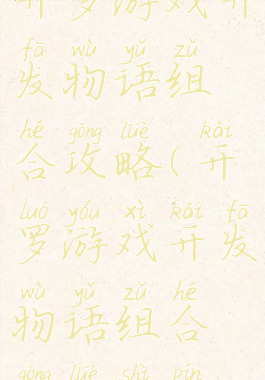 开罗游戏开
fā wù yǔ zǔ
发物语组
hé gōng lüè kāi
合攻略(开
luó yóu xì kāi fā
罗游戏开发
wù yǔ zǔ hé
物语组合
gōng lüè shì pín